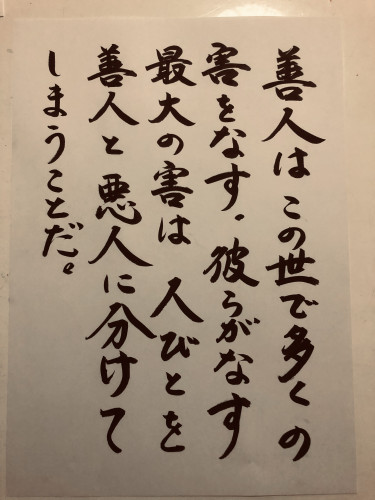 善人はこの世で多くの
害をなす。彼らがなす
最大の害は 人びとを
善人と悪人に分けて
しまうことだ。